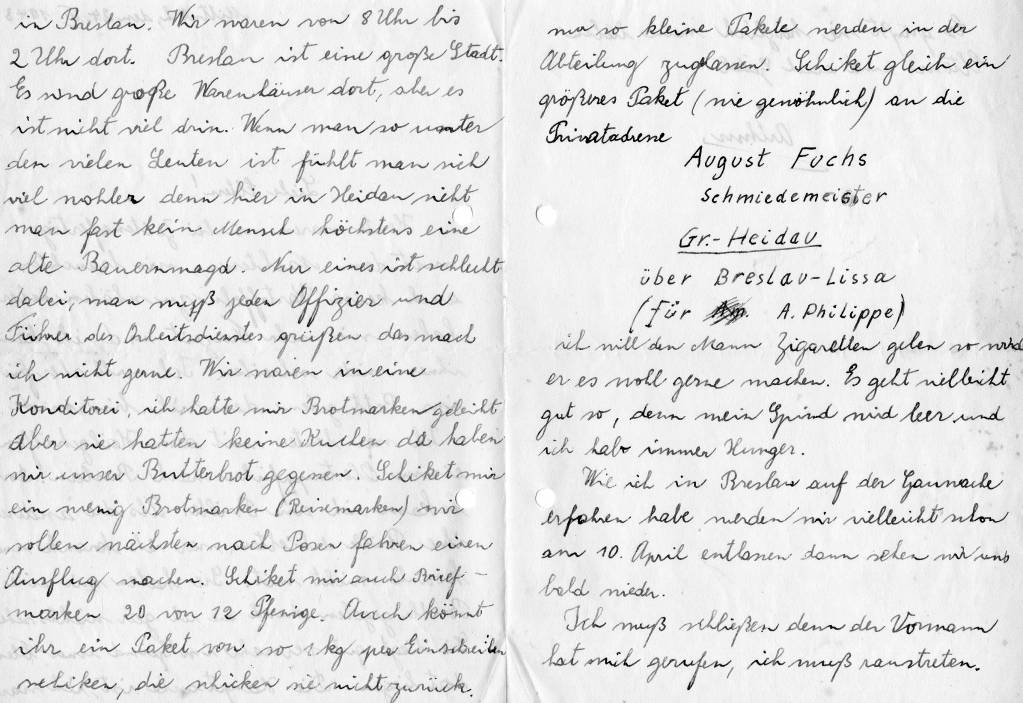 in Breslau. Wir waren von 8 Uhr bis
2 Uhr dort. Breslau ist eine große Stadt.
Es sind große Warenhäuser dort, aber es
ist nicht viel drin. Wenn man so unter
den vielen Leuten ist fühlt man sich
viel wohler denn hier in Heidau sieht
man fast kein Mensch höchstens eine
alte Bauernmagd. Nur eines ist schlecht
dabei, man muß jeden Offizier und
Führer des Arbeitsdienstes grüßen das mach
ich nicht gerne. Wir waren in eine
Konditorei, ich hatte mir Brotmarken geleiht
aber sie hatten keine Kuchen da haben
wir unser Butterbrot gegessen. Schiket mir
ein wenig Brotmarken (Reisemarken) wir
sollen nächsten nach Posen fahren einen
Ausflug machen. Schiket mir auch Brief-
marken 20 von 12 Pfenige. Auch könnt
ihr ein Paket von so 1 kg per Einschreiben
schiken, die schicken sie nicht zurück.
nur so kleine Pakete werden in der
Abteilung zuglassen. Schiket gleich ein
größeres Paket (wie gewöhnlich) an die
Privatadresse
August Fuchs
Schmiedemeister
Gr.-Heidau
über Breslau-Lissa
(Für A. Philippe)
ich will den Mann Zigaretten geben so wird
er es wohl gerne machen. Es geht vielleicht
gut so, denn mein Spind wird leer und
ich habe immer Hunger.
Wie ich in Breslau auf der Gauwache
erfahren habe werden wir vielleicht schon
am 10. April entlassen dann sehen wir uns
bald wieder.
Ich muß schließen denn der Vormann
hat mich gerufen, ich muß raustreten.